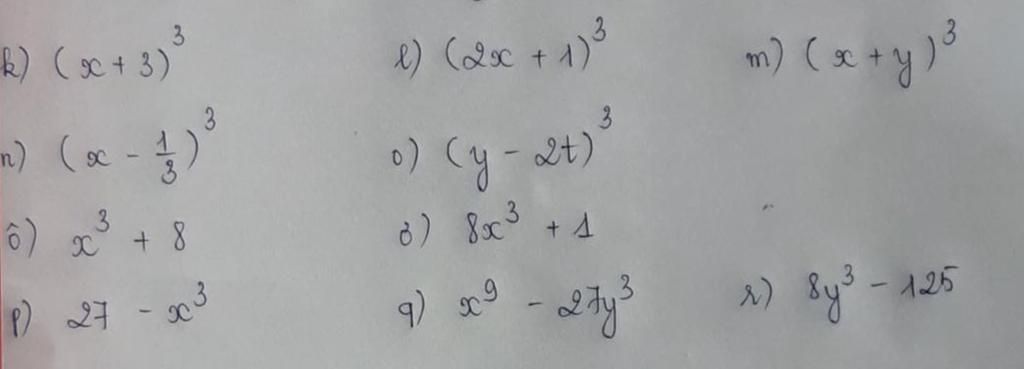 k) (x + 3)³ l) (2x + 1)³ m) (x + y)³
n) (x - 1/3)³ o) (y - 2t)³
ô) x³ + 8 ơ) 8x³ + 1
p) 27 - x³ q) x⁹ - 27y³ r) 8y³ - 125